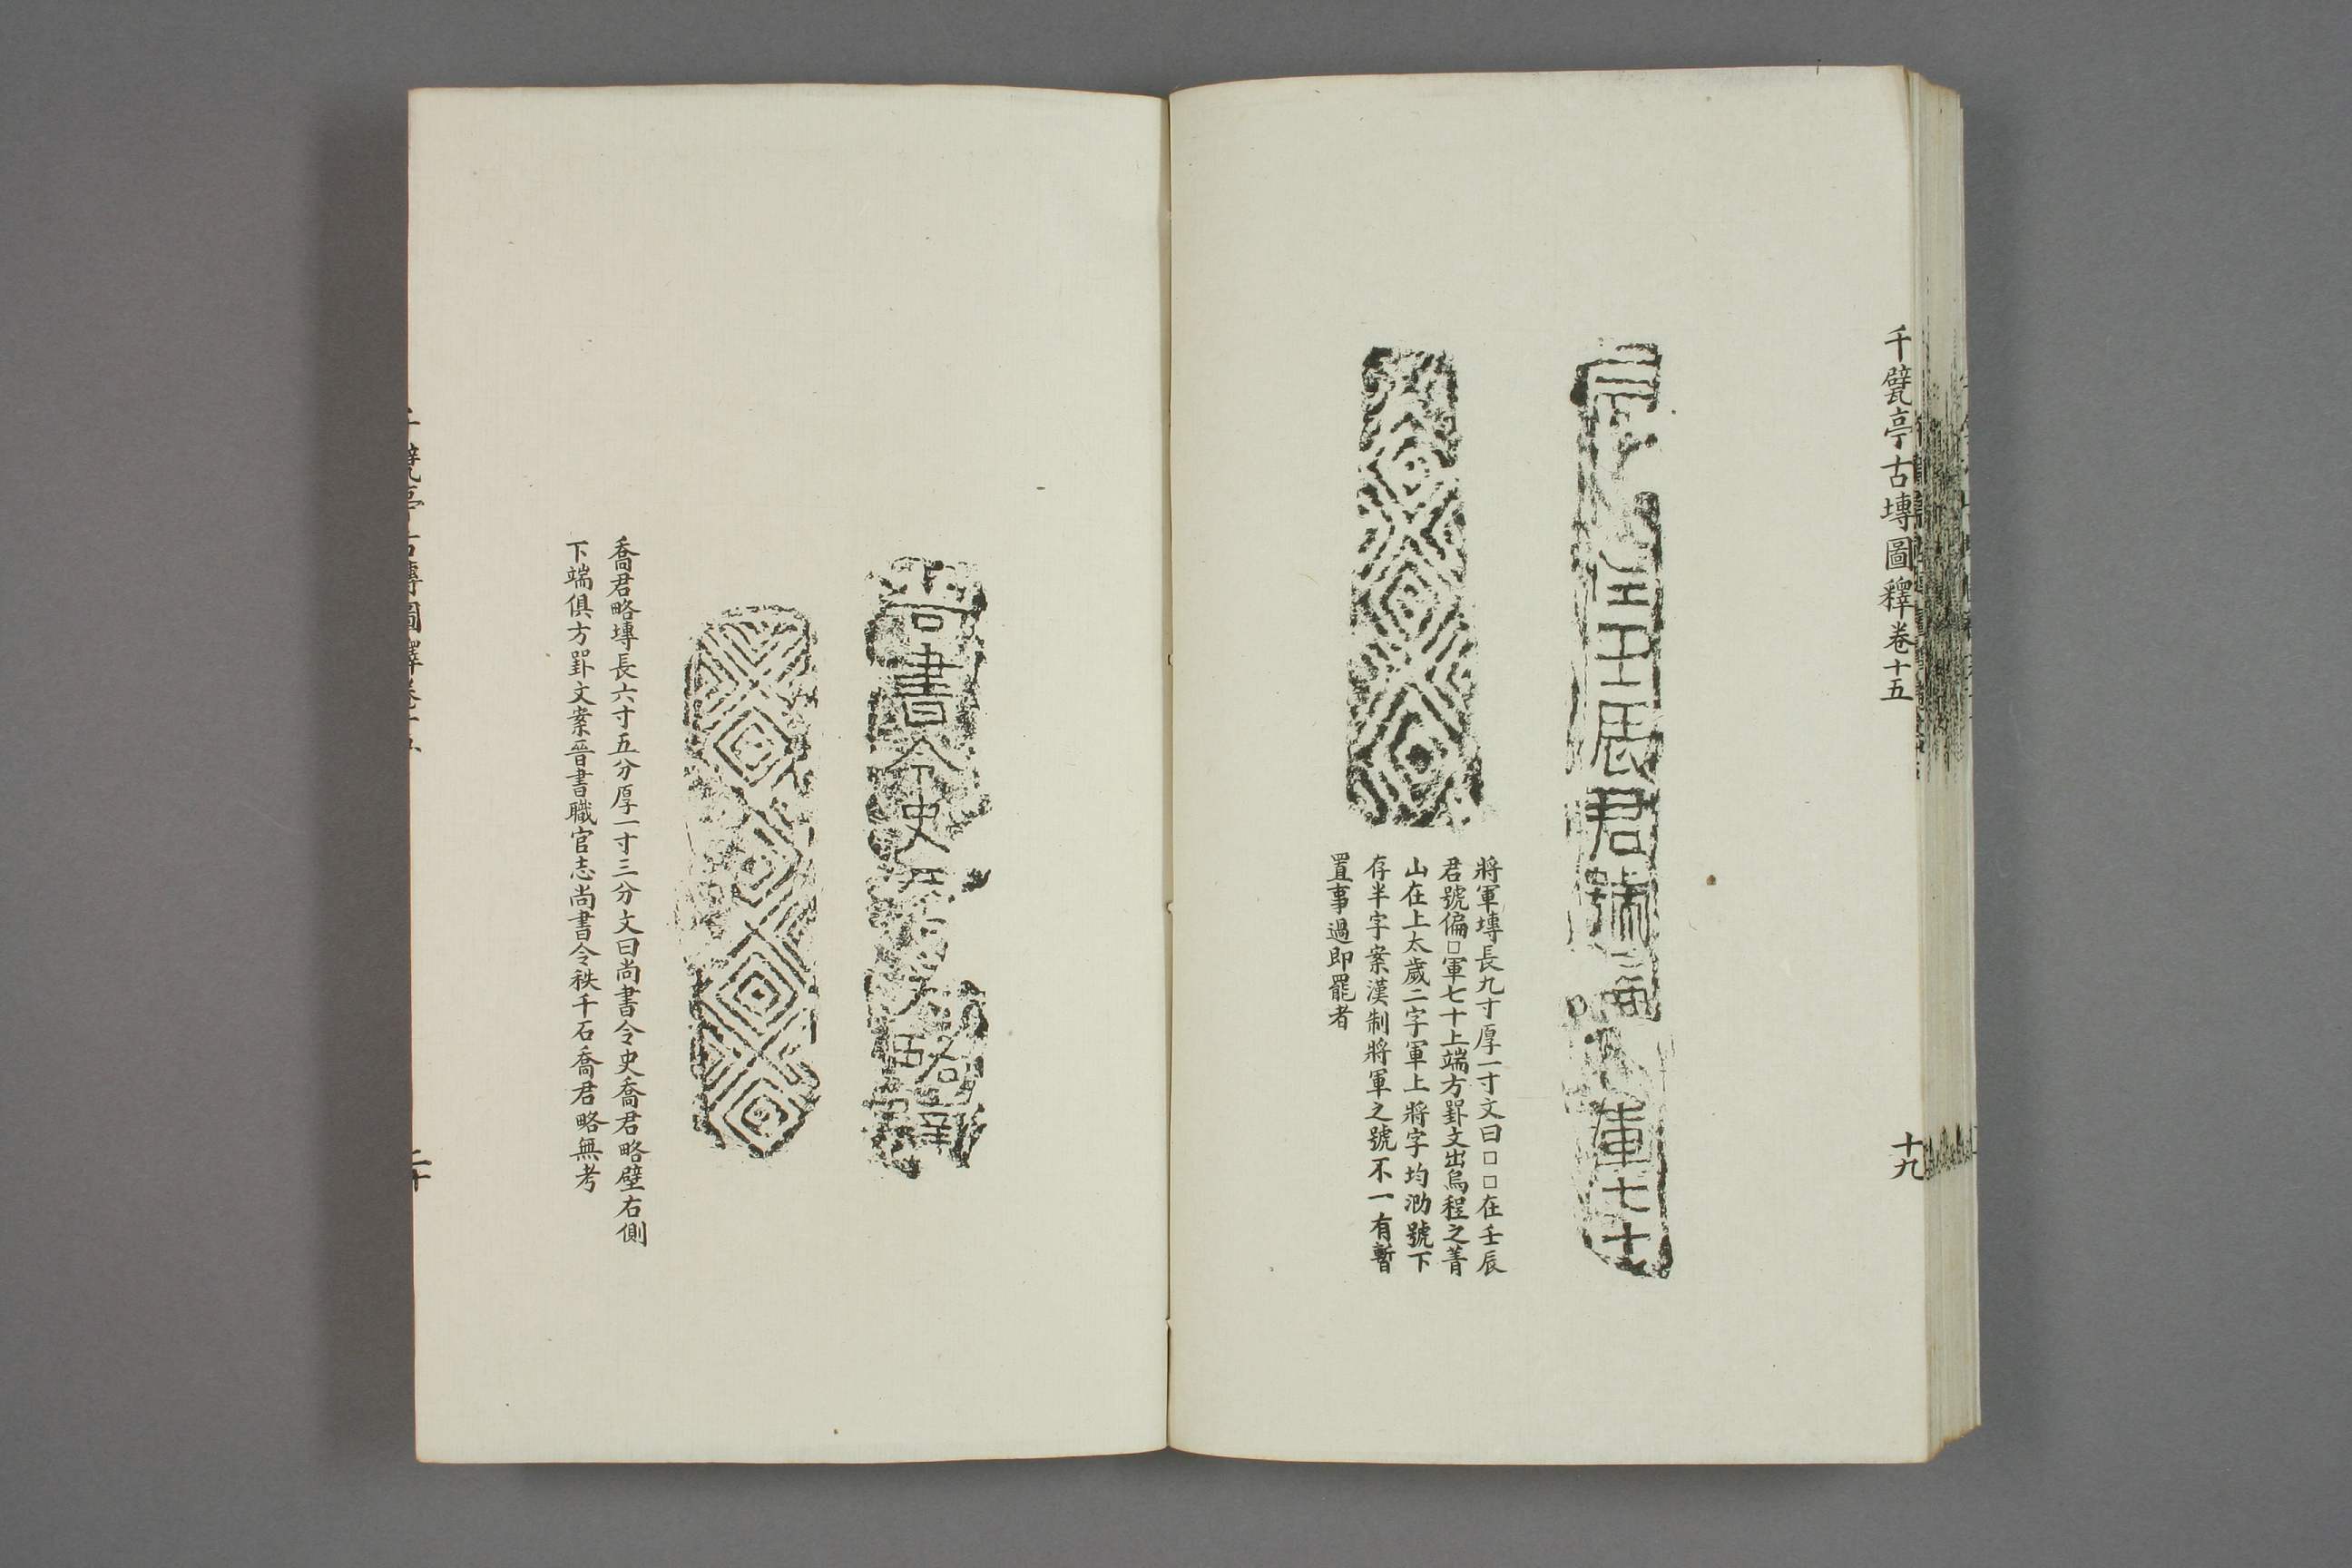 千甓亭古塼圖釋卷十五
十九
在壬辰君號
軍七十
將軍塼長九寸厚一寸文曰□□在壬辰
君號偏□軍七十上端方罫文出烏程之菁
山在上太歲二字軍上將字均泐號下
存半字案漢制將軍之號不一有暫
置事過即罷者
尚書令史
喬君略塼長六寸五分厚一寸三分文曰尚書令史喬君略壁右側
下端俱方罫文案晉書職官志尚書令秩千石喬君略無考
二十